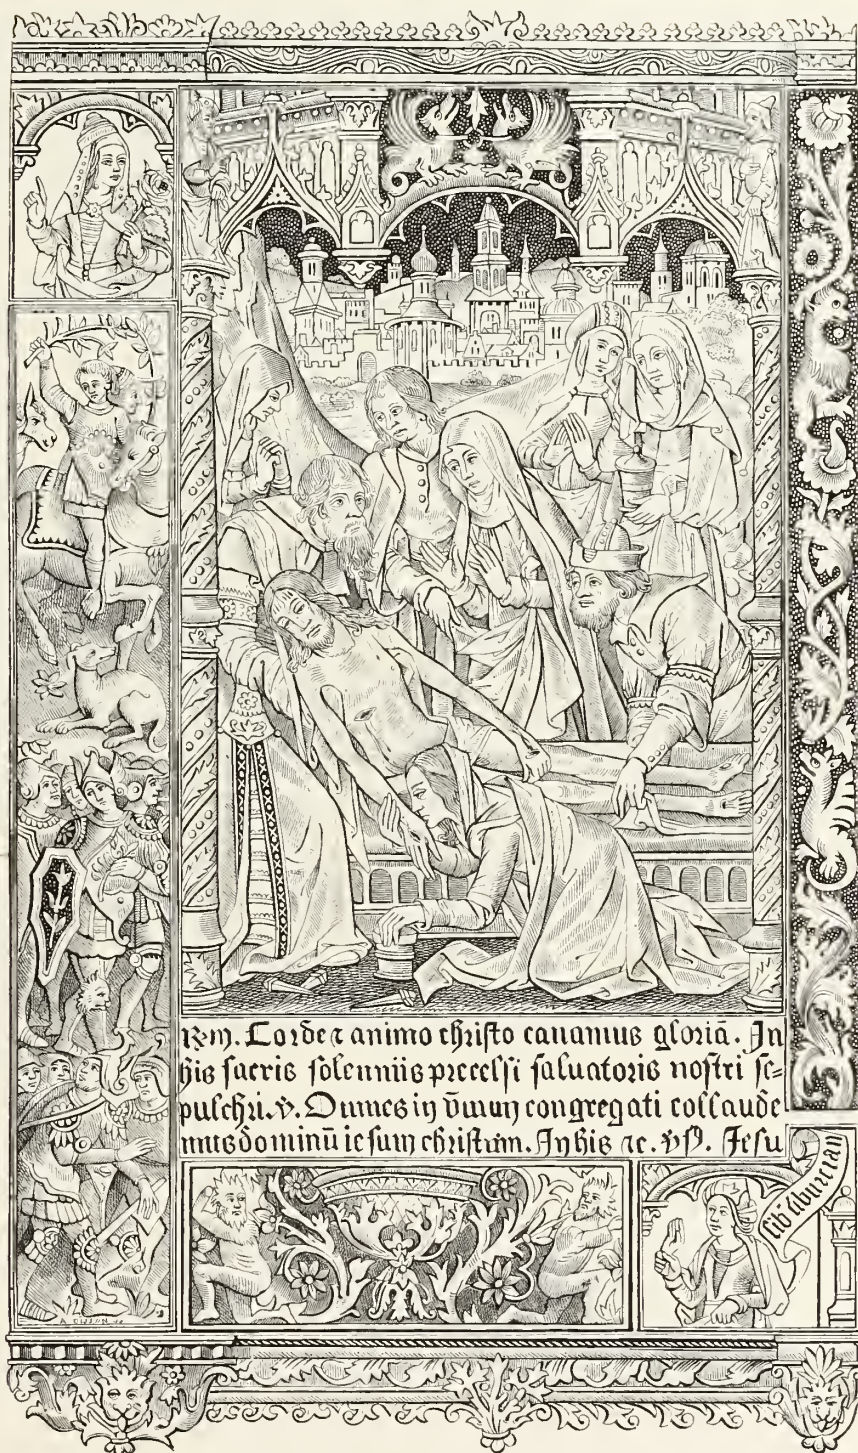 ℟m. Corde ⁊ animo christo canamus gloriā. In
his sacris solenniis precelsi saluatoris nostri se-
pulchri. ℣. Omnes in vnum congregati collaude
mus dominū iesum christum. In his ⁊c. ℣s. Iesu
sib'